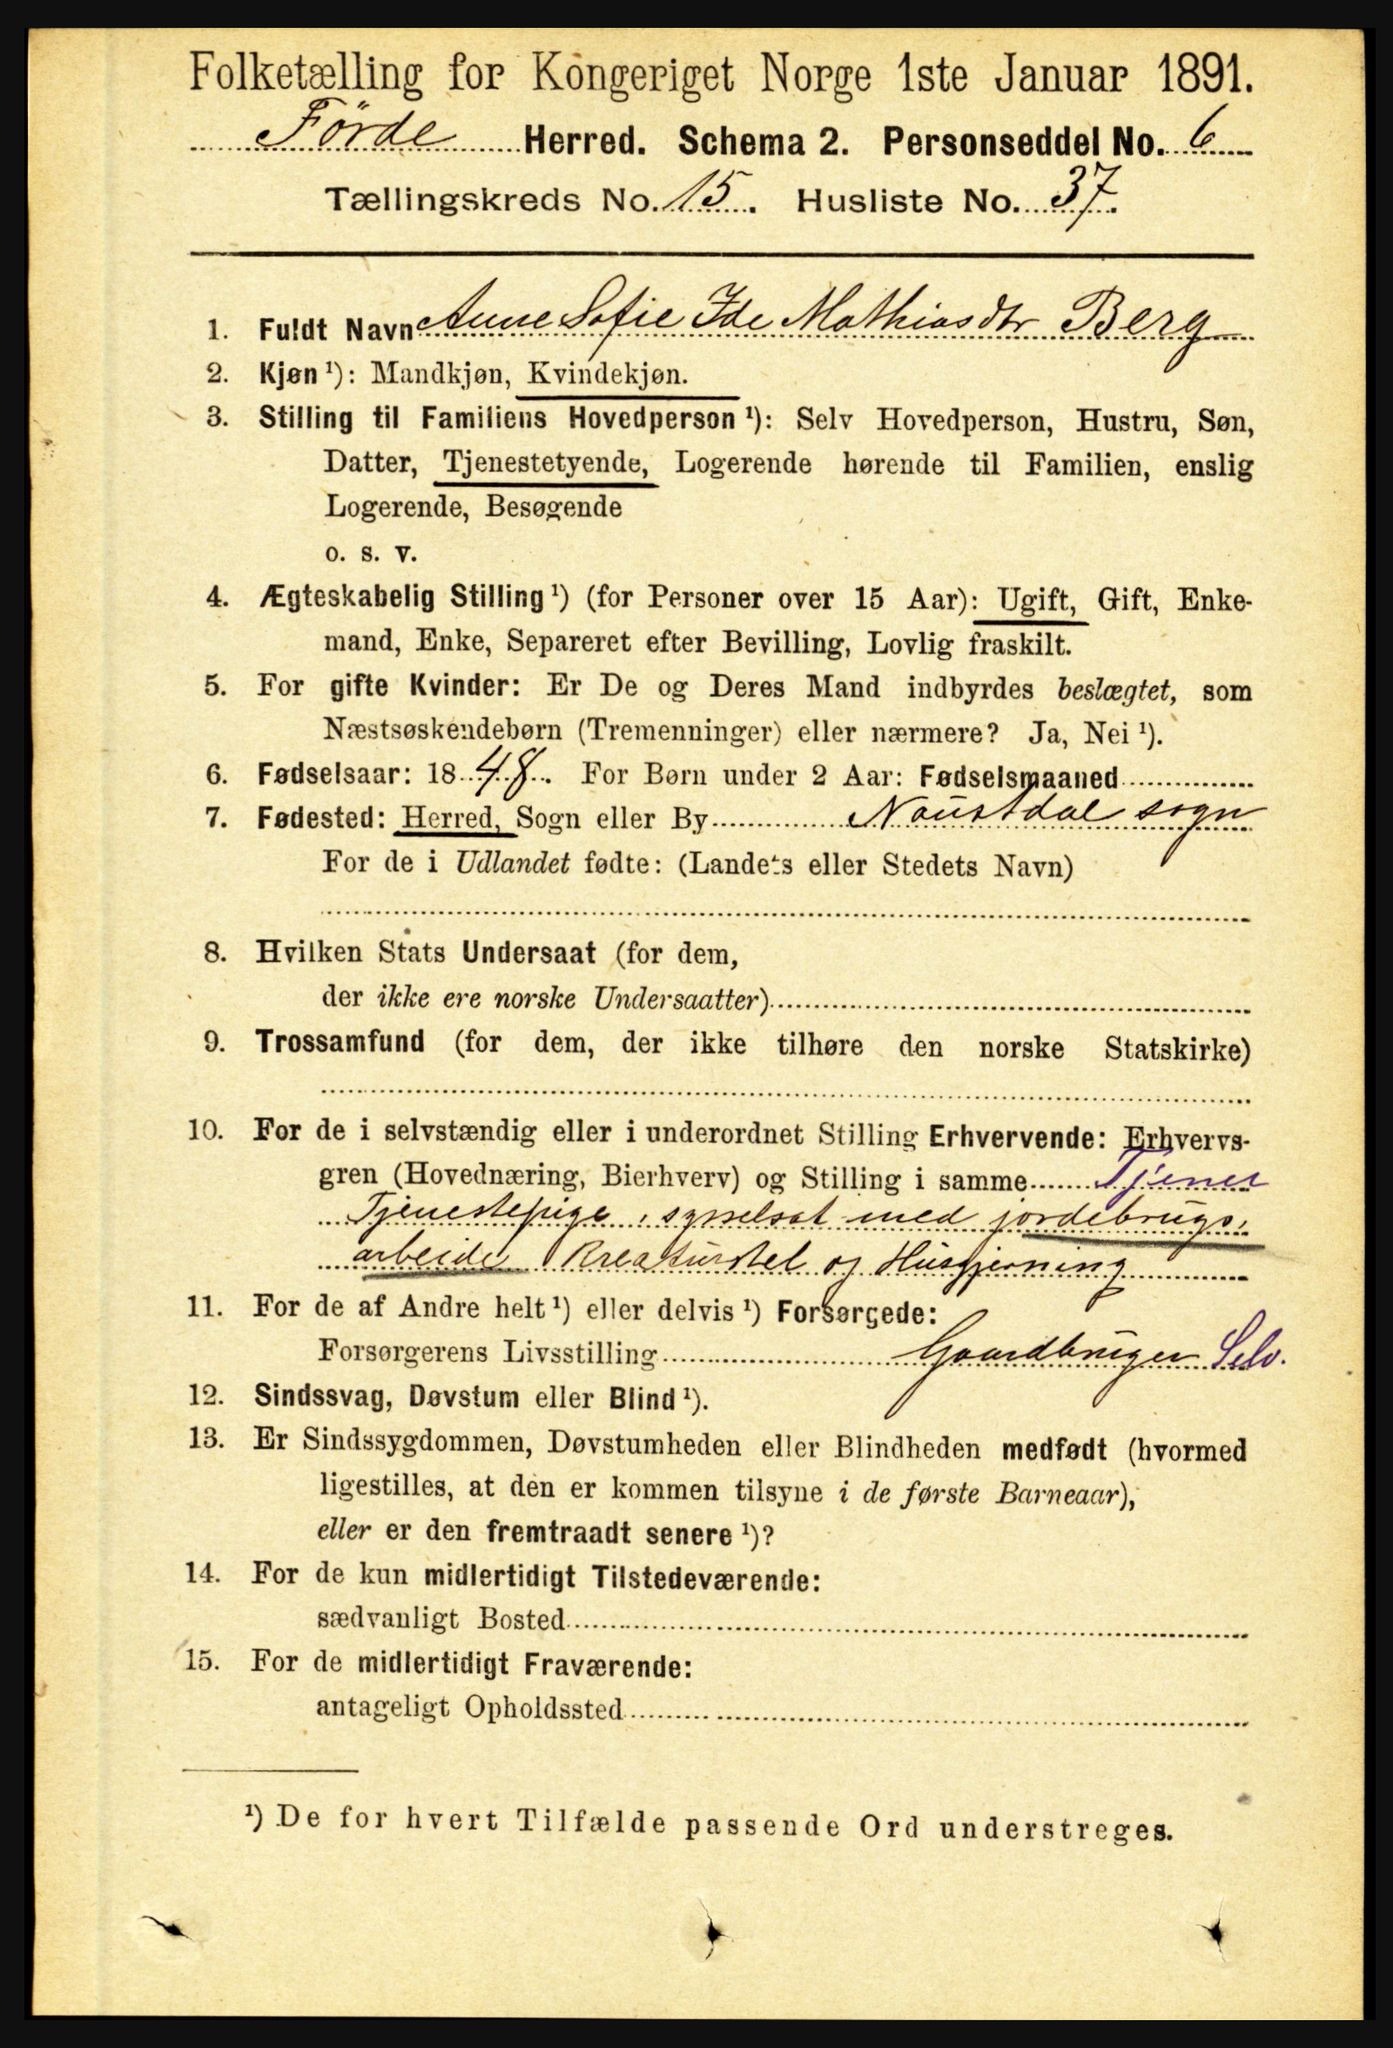 Folketælling for Kongeriget Norge 1ste Januar 1891.
Førde Herred. Schema 2. Personseddel No. 6
Tællingskreds No. 15. Husliste No. 37.
1. Fuldt Navn Anne Sofie Ide Mathiasdtr Berg
2. Kjøn ¹): Mandkjøn, Kvindekjøn.
3. Stilling til Familiens Hovedperson ¹): Selv Hovedperson, Hustru, Søn,
Datter, Tjenestetyende, Logerende hørende til Familien, enslig
Logerende, Besøgende
o. s. v.
4. Ægteskabelig Stilling ¹) (for Personer over 15 Aar): Ugift, Gift, Enke-
mand, Enke, Separeret efter Bevilling, Lovlig fraskilt.
5. For gifte Kvinder: Er De og Deres Mand indbyrdes beslægtet, som
Næstsøskendebørn (Tremenninger) eller nærmere? Ja, Nei ¹).
6. Fødselsaar: 1848. For Børn under 2 Aar: Fødselsmaaned
7. Fødested: Herred, Sogn eller By Naustdal sogn
For de i Udlandet fødte: (Landets eller Stedets Navn)
8. Hvilken Stats Undersaat (for dem,
der ikke ere norske Undersaatter)
9. Trossamfund (for dem, der ikke tilhøre den norske Statskirke)
10. For de i selvstændig eller i underordnet Stilling Erhvervende: Erhvervs-
gren (Hovednæring, Bierhverv) og Stilling i samme Tjener
Tjenestepige, sysselsat med jordebrugs,
arbeide Kreaturstel og Husgjerning
11. For de af Andre helt ¹) eller delvis ¹) Forsørgede:
Forsørgerens Livsstilling Gaardbruger Selv.
12. Sindssvag, Døvstum eller Blind ¹).
13. Er Sindssygdommen, Døvstumheden eller Blindheden medfødt (hvormed
ligestilles, at den er kommen tilsyne i de første Barneaar),
eller er den fremtraadt senere ¹)?
14. For de kun midlertidigt Tilstedeværende:
sædvanligt Bosted
15. For de midlertidigt Fraværende:
antageligt Opholdssted
¹) De for hvert Tilfælde passende Ord understreges.